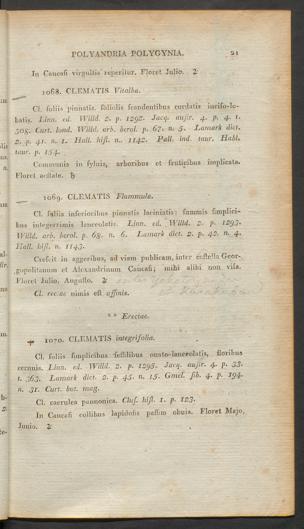 POLYANDRIA POLYGYNIA. 21
In Caucasi virgultis reperitur. Floret Julio. ♃
1068. CLEMATIS Vitalba.
Cl. foliis pinnatis. foliolis scandentibus cordatis inciso-lo-
batis. Linn. ed. Willd. 2. p. 1292. Jacq. austr. 4. p. 4. t.
308. Curt. lond. Willd. arb. berol. p. 67. n. 5. Lamark dict.
2. p. 41. n. 1. Hall. hist. n. 1142. Pall. ind. taur. Habl.
taur. p. 154.
Communis in sylvis, arboribus et fruticibus implicata.
Floret aestate. ♄
1069. CLEMATIS Flammula.
Cl. foliis inferioribus pinnatis laciniatis; summis simplici-
bus integerrimis lanceolatis. Linn. ed. Willd. 2. p. 1293.
Willd. arb. berol. p. 68. n. 6. Lamark dict. 2. p. 42. n. 4.
Hall. hist. n. 1143.
Crescit in aggeribus, ad viam publicam, inter castella Geor-
gopolitanum et Alexandrinum Caucasi; mihi alibi non visa.
Floret Julio, Augusto. ♃
Cl. rectae nimis est affinis.
** Erectae.
+ 1070. CLEMATIS integrifolia.
Cl. foliis simplicibus sessilibus ovato-lanceolatis, floribus
cernuis. Linn. ed. Willd. 2. p. 1295. Jacq. austr. 4. p. 33.
t. 363. Lamark dict. 2. p. 45. n. 15. Gmel. sib. 4. p. 194.
n. 31. Curt. bot. mag.
Cl. caerulea pannonica. Clus. hist. 1. p. 123.
In Caucasi collibus lapidosis passim obvia. Floret Majo,
Junio. ♃